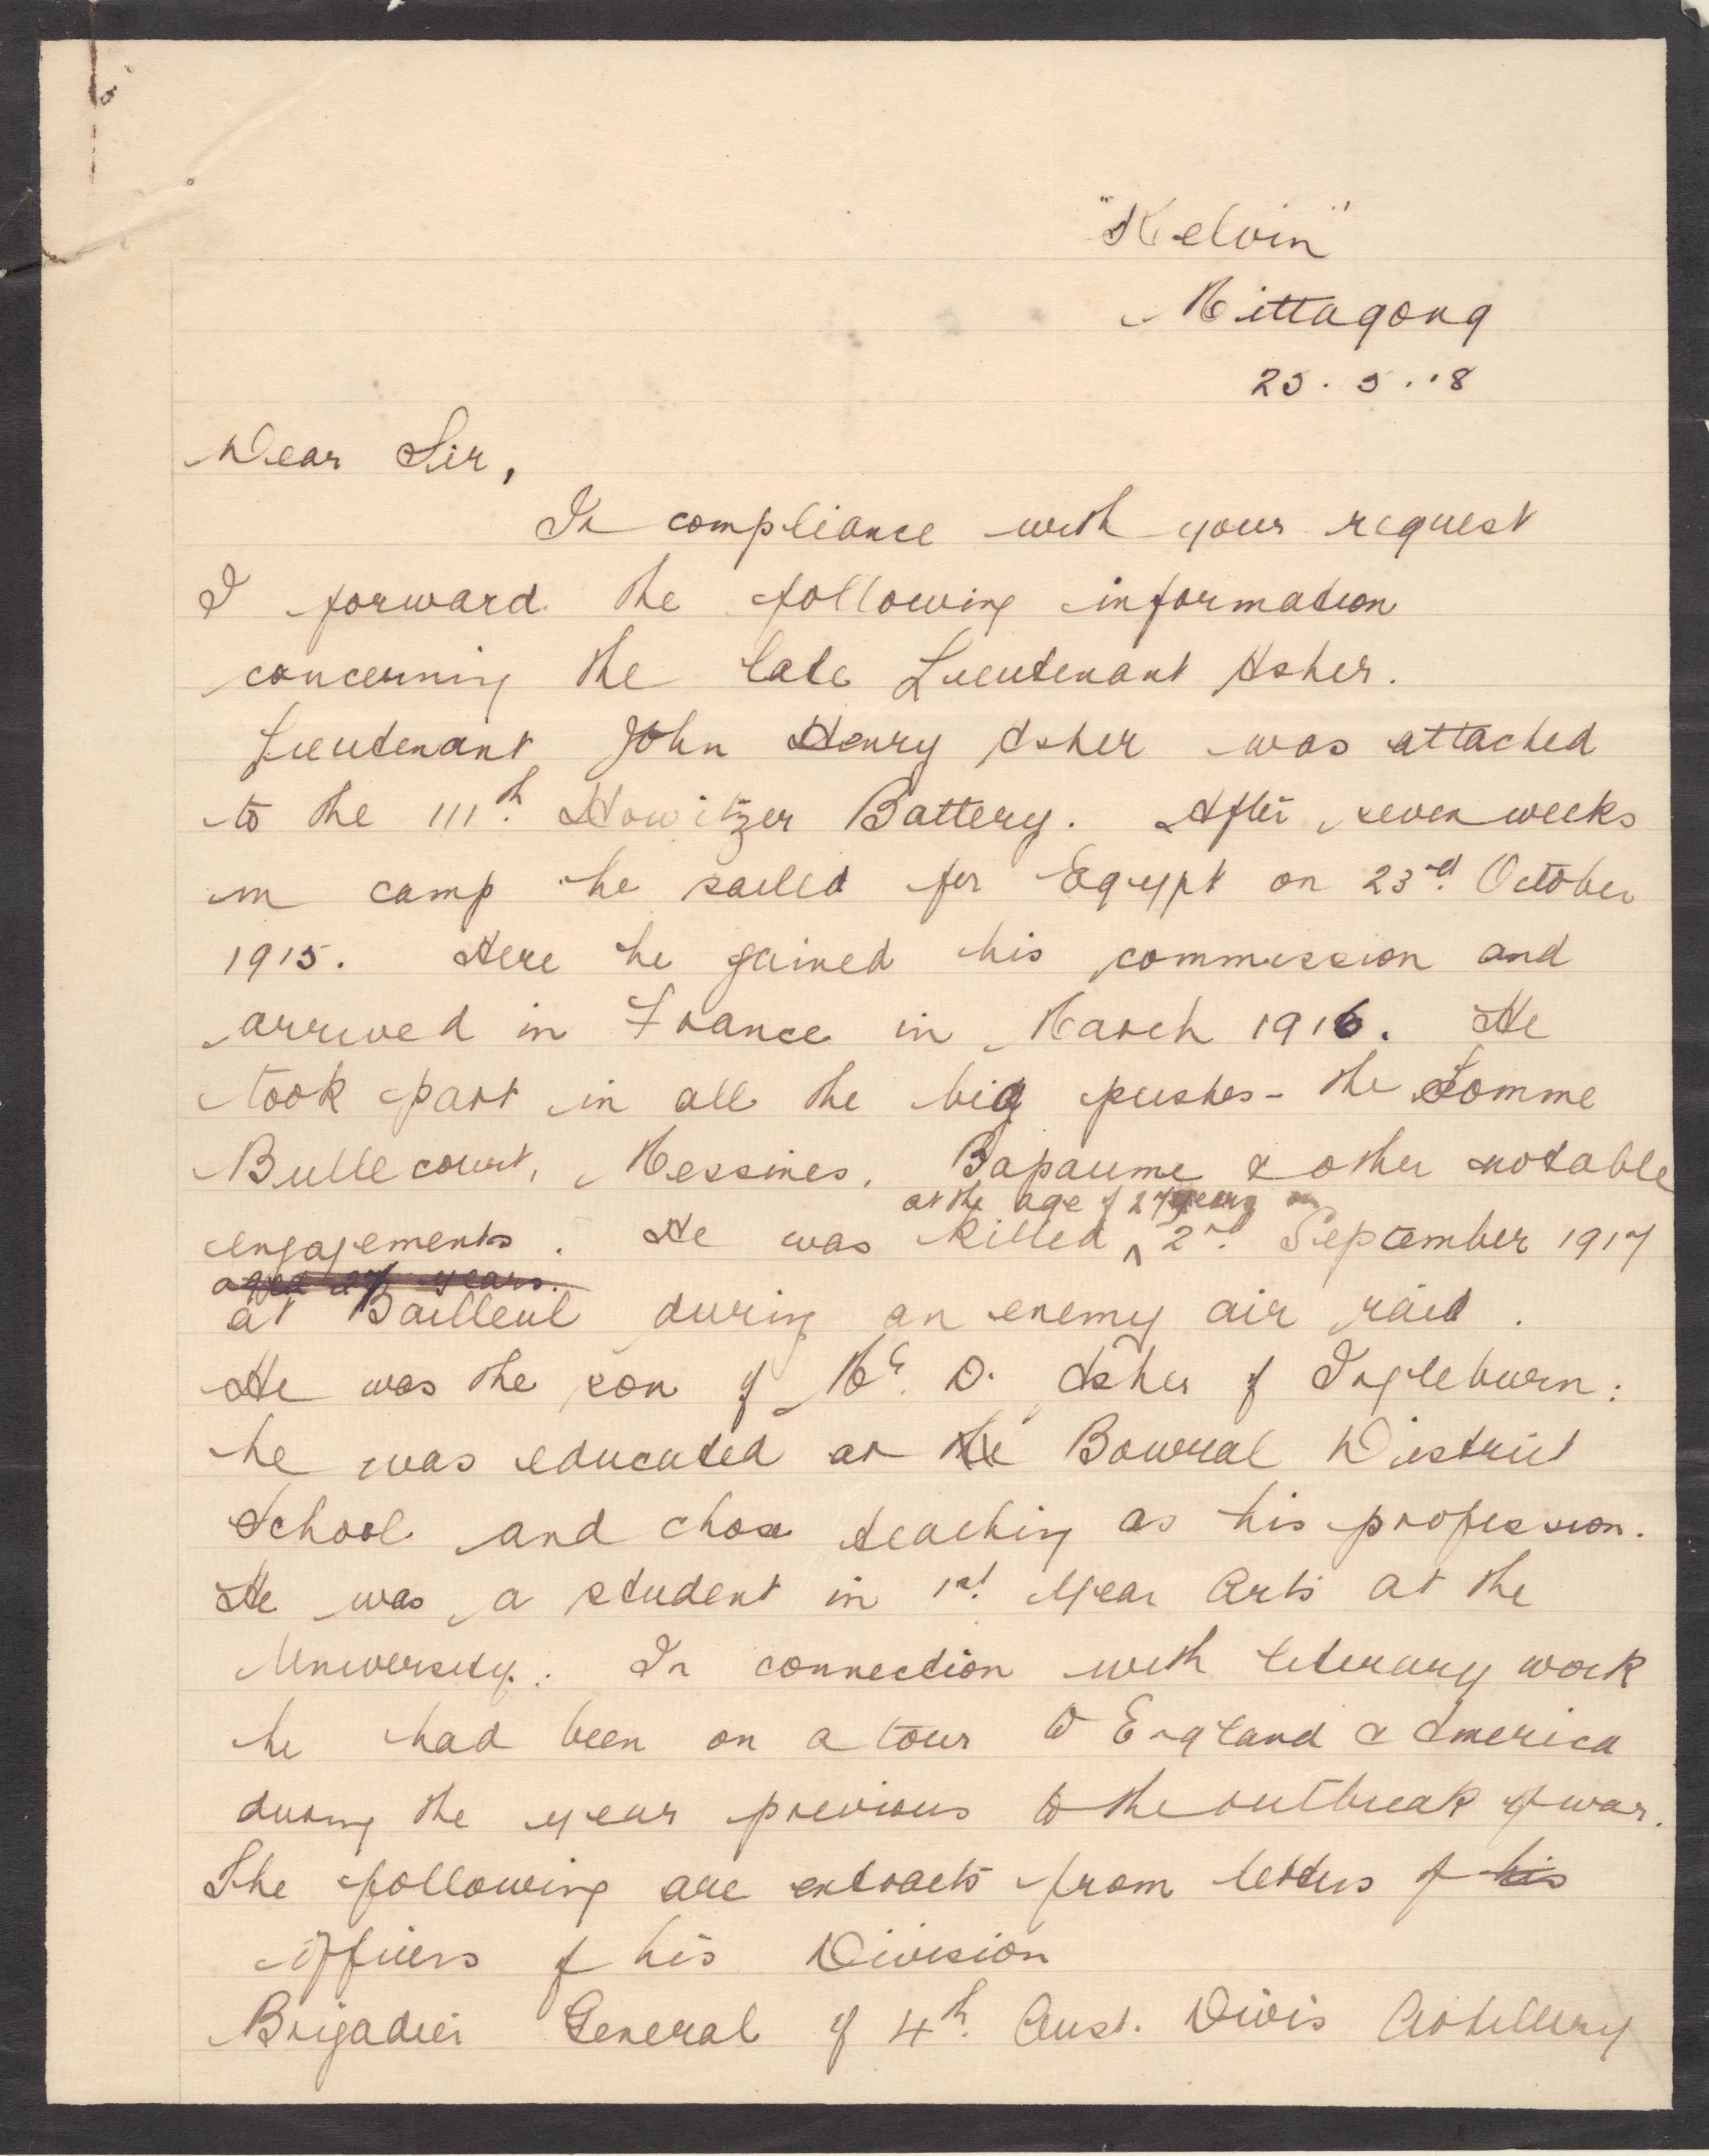 "Kelvin"
Mittagong
25.5.18
Dear Sir,
In compliance with your request
I forward the following information
concerning the late Lieutenant Asher.
Lieutenant John Henry Asher was attached
to the 111th. Howitzer Battery. After seven weeks
in camp he sailed for Egypt on 23rd. October
1915. Here he gained his commission and
arrived in France in March 1916. He
took part in all the big pushes - the Somme
Bullecourt, Messines, Bapaume & other notable
at the age of 27 years on
engagements. He was killed ^ 2nd. September 1917
aged 27 years.
at Bailleul during an enemy air raid.
He was the son of Mr. D. Asher of Ingleburn:
he was educated at the Bowral District
School and chose teaching as his profession.
He was a student in 1st. Year Arts at the
University. In connection with literary work
he had been on a tour to England & America
during the year previous to the outbreak of war.
The following are extracts from letters of his
Officers of his Division
Brigadier General of 4th. Aust. Divis Artillery